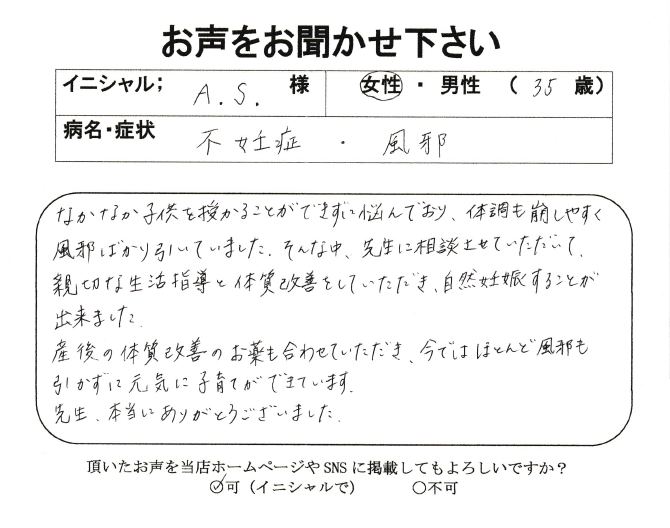 お声をお聞かせ下さい
イニシャル； A.S. 様 女性 ・ 男性 （ 35 歳）
病名・症状 不妊症 ・ 風邪
なかなか子供を授かることができずに悩んでおり、体調も崩しやすく
風邪ばかり引いていました。そんな中、先生に相談させていただいて、
親切な生活指導と体質改善をしていただき、自然妊娠することが
出来ました。
産後の体質改善のお薬も合わせていただき、今ではほとんど風邪も
引かずに元気に子育てができています。
先生、本当にありがとうございました。
頂いたお声を当店ホームページや SNS に掲載してもよろしいですか？
○可（イニシャルで） ○不可